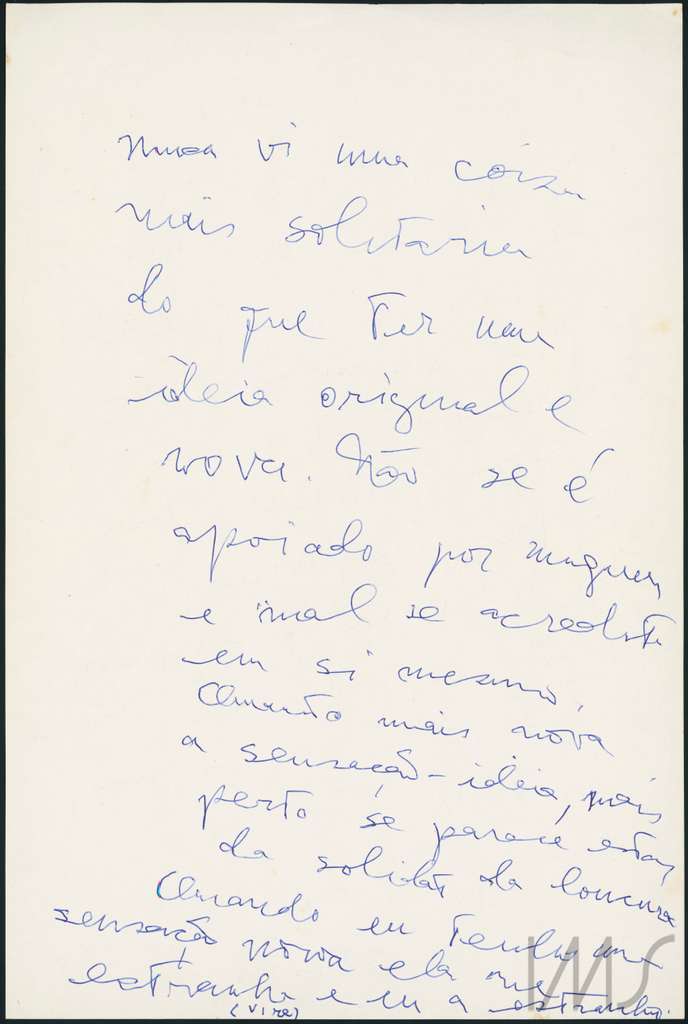 Nunca vi uma coisa
mais solitaria
do que ter uma
ideia original e
nova. Não se é
apoiado por ninguem
e mal se acredita
em si mesmo.
Quanto mais nova
a sensação-ideia, mais
perto se parece estar
da solidão da loucura
Quando eu tenho uma
sensação nova ela me
estranha e eu a estranho.
(vire)
IMS